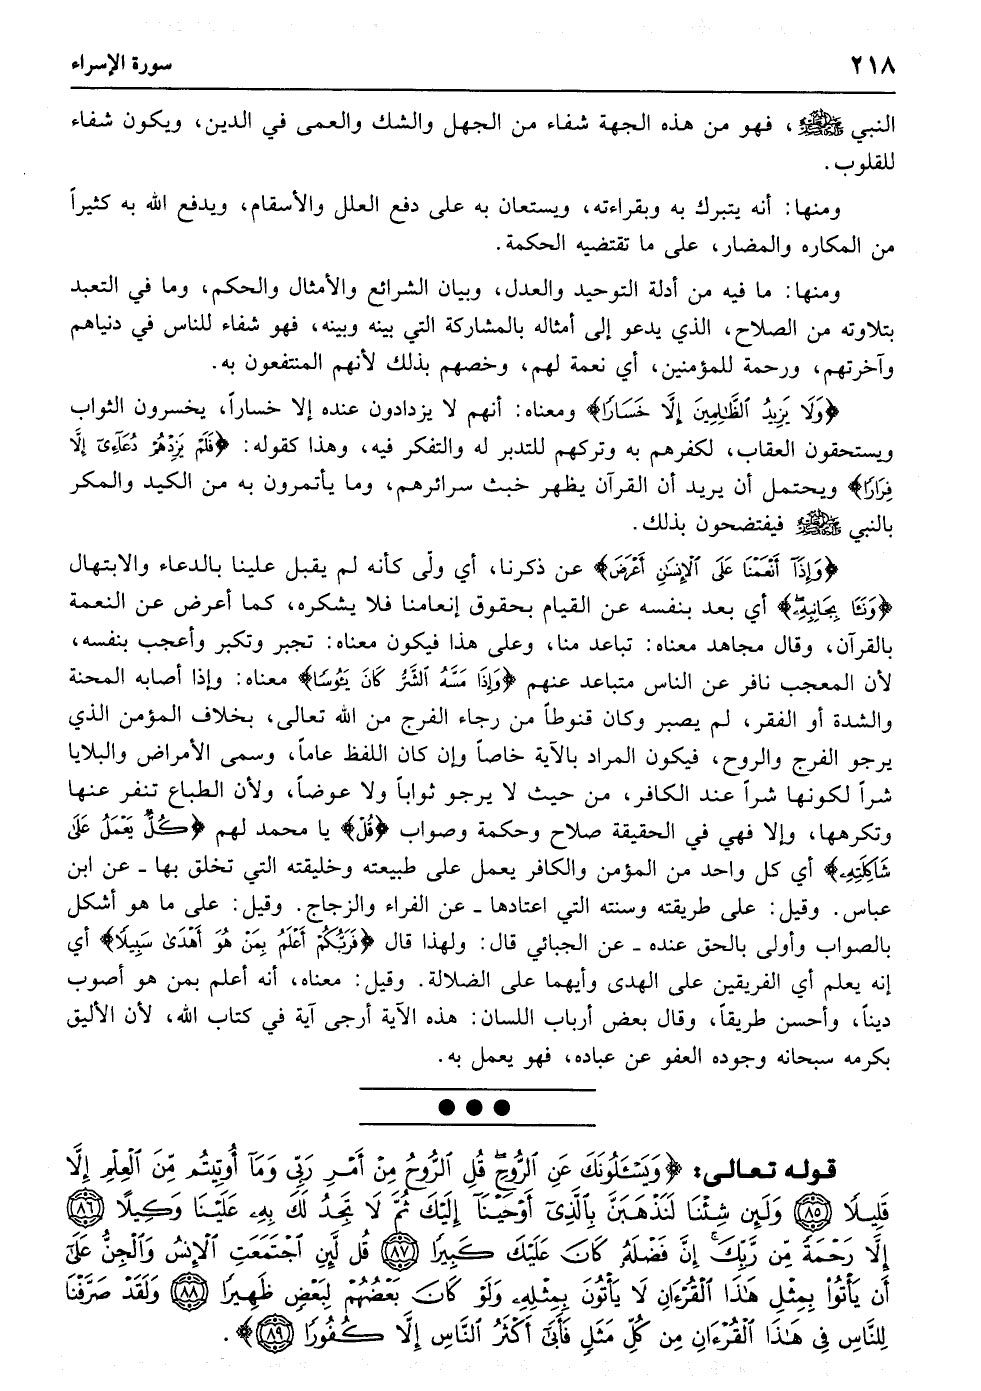 ٢١٨ سورة الإسراء
النبي ﷺ، فهو من هذه الجهة شفاء من الجهل والشك والعمى في الدين، ويكون شفاء
للقلوب.
ومنها: أنه يتبرك به وبقراءته، ويستعان به على دفع العلل والأسقام، ويدفع الله به كثيراً
من المكاره والمضار، على ما تقتضيه الحكمة.
ومنها: ما فيه من أدلة التوحيد والعدل، وبيان الشرائع والأمثال والحكم، وما في التعبد
بتلاوته من الصلاح، الذي يدعو إلى أمثاله بالمشاركة التي بينه وبينه، فهو شفاء للناس في دنياهم
وآخرتهم، ورحمة للمؤمنين، أي نعمة لهم، وخصهم بذلك لأنهم المنتفعون به.
﴿وَلَا يَزِيدُ ٱلظَّٰلِمِينَ إِلَّا خَسَارًا﴾ ومعناه: أنهم لا يزدادون عنده إلا خساراً، يخسرون الثواب
ويستحقون العقاب، لكفرهم به وتركهم للتدبر له والتفكر فيه، وهذا كقوله: ﴿فَلَمْ يَزِدْهُمْ دُعَآءِىٓ إِلَّا
فِرَارًا﴾ ويحتمل أن يريد أن القرآن يظهر خبث سرائرهم، وما يأتمرون به من الكيد والمكر
بالنبي ﷺ فيفتضحون بذلك.
﴿وَإِذَآ أَنْعَمْنَا عَلَى ٱلْإِنسَٰنِ أَعْرَضَ﴾ عن ذكرنا، أي ولّى كأنه لم يقبل علينا بالدعاء والابتهال
﴿وَنَـَٔا بِجَانِبِهِۦ﴾ أي بعد بنفسه عن القيام بحقوق إنعامنا فلا يشكره، كما أعرض عن النعمة
بالقرآن، وقال مجاهد معناه: تباعد منا، وعلى هذا فيكون معناه: تجبر وتكبر وأعجب بنفسه،
لأن المعجب نافر عن الناس متباعد عنهم ﴿وَإِذَا مَسَّهُ ٱلشَّرُّ كَانَ يَـُٔوسًا﴾ معناه: وإذا أصابه المحنة
والشدة أو الفقر، لم يصبر وكان قنوطاً من رجاء الفرج من الله تعالى، بخلاف المؤمن الذي
يرجو الفرج والروح، فيكون المراد بالآية خاصاً وإن كان اللفظ عاماً، وسمى الأمراض والبلايا
شراً لكونها شراً عند الكافر، من حيث لا يرجو ثواباً ولا عوضاً، ولأن الطباع تنفر عنها
وتكرهها، وإلا فهي في الحقيقة صلاح وحكمة وصواب ﴿قُلْ﴾ يا محمد لهم ﴿كُلٌّ يَعْمَلُ عَلَىٰ
شَاكِلَتِهِۦ﴾ أي كل واحد من المؤمن والكافر يعمل على طبيعته وخليقته التي تخلق بها ـ عن ابن
عباس. وقيل: على طريقته وسنته التي اعتادها ـ عن الفراء والزجاج. وقيل: على ما هو أشكل
بالصواب وأولى بالحق عنده ـ عن الجبائي قال: ولهذا قال ﴿فَرَبُّكُمْ أَعْلَمُ بِمَنْ هُوَ أَهْدَىٰ سَبِيلًا﴾ أي
إنه يعلم أي الفريقين على الهدى وأيهما على الضلالة. وقيل: معناه، أنه أعلم بمن هو أصوب
ديناً، وأحسن طريقاً، وقال بعض أرباب اللسان: هذه الآية أرجى آية في كتاب الله، لأن الأليق
بكرمه سبحانه وجوده العفو عن عباده، فهو يعمل به.
قوله تعالى: ﴿وَيَسْـَٔلُونَكَ عَنِ ٱلرُّوحِ ۖ قُلِ ٱلرُّوحُ مِنْ أَمْرِ رَبِّى وَمَآ أُوتِيتُم مِّنَ ٱلْعِلْمِ إِلَّا
قَلِيلًا ٨٥ وَلَئِن شِئْنَا لَنَذْهَبَنَّ بِٱلَّذِىٓ أَوْحَيْنَآ إِلَيْكَ ثُمَّ لَا تَجِدُ لَكَ بِهِۦ عَلَيْنَا وَكِيلًا ٨٦
إِلَّا رَحْمَةً مِّن رَّبِّكَ ۚ إِنَّ فَضْلَهُۥ كَانَ عَلَيْكَ كَبِيرًا ٨٧ قُل لَّئِنِ ٱجْتَمَعَتِ ٱلْإِنسُ وَٱلْجِنُّ عَلَىٰٓ
أَن يَأْتُوا۟ بِمِثْلِ هَٰذَا ٱلْقُرْءَانِ لَا يَأْتُونَ بِمِثْلِهِۦ وَلَوْ كَانَ بَعْضُهُمْ لِبَعْضٍ ظَهِيرًا ٨٨ وَلَقَدْ صَرَّفْنَا
لِلنَّاسِ فِى هَٰذَا ٱلْقُرْءَانِ مِن كُلِّ مَثَلٍ فَأَبَىٰٓ أَكْثَرُ ٱلنَّاسِ إِلَّا كُفُورًا ٨٩﴾.